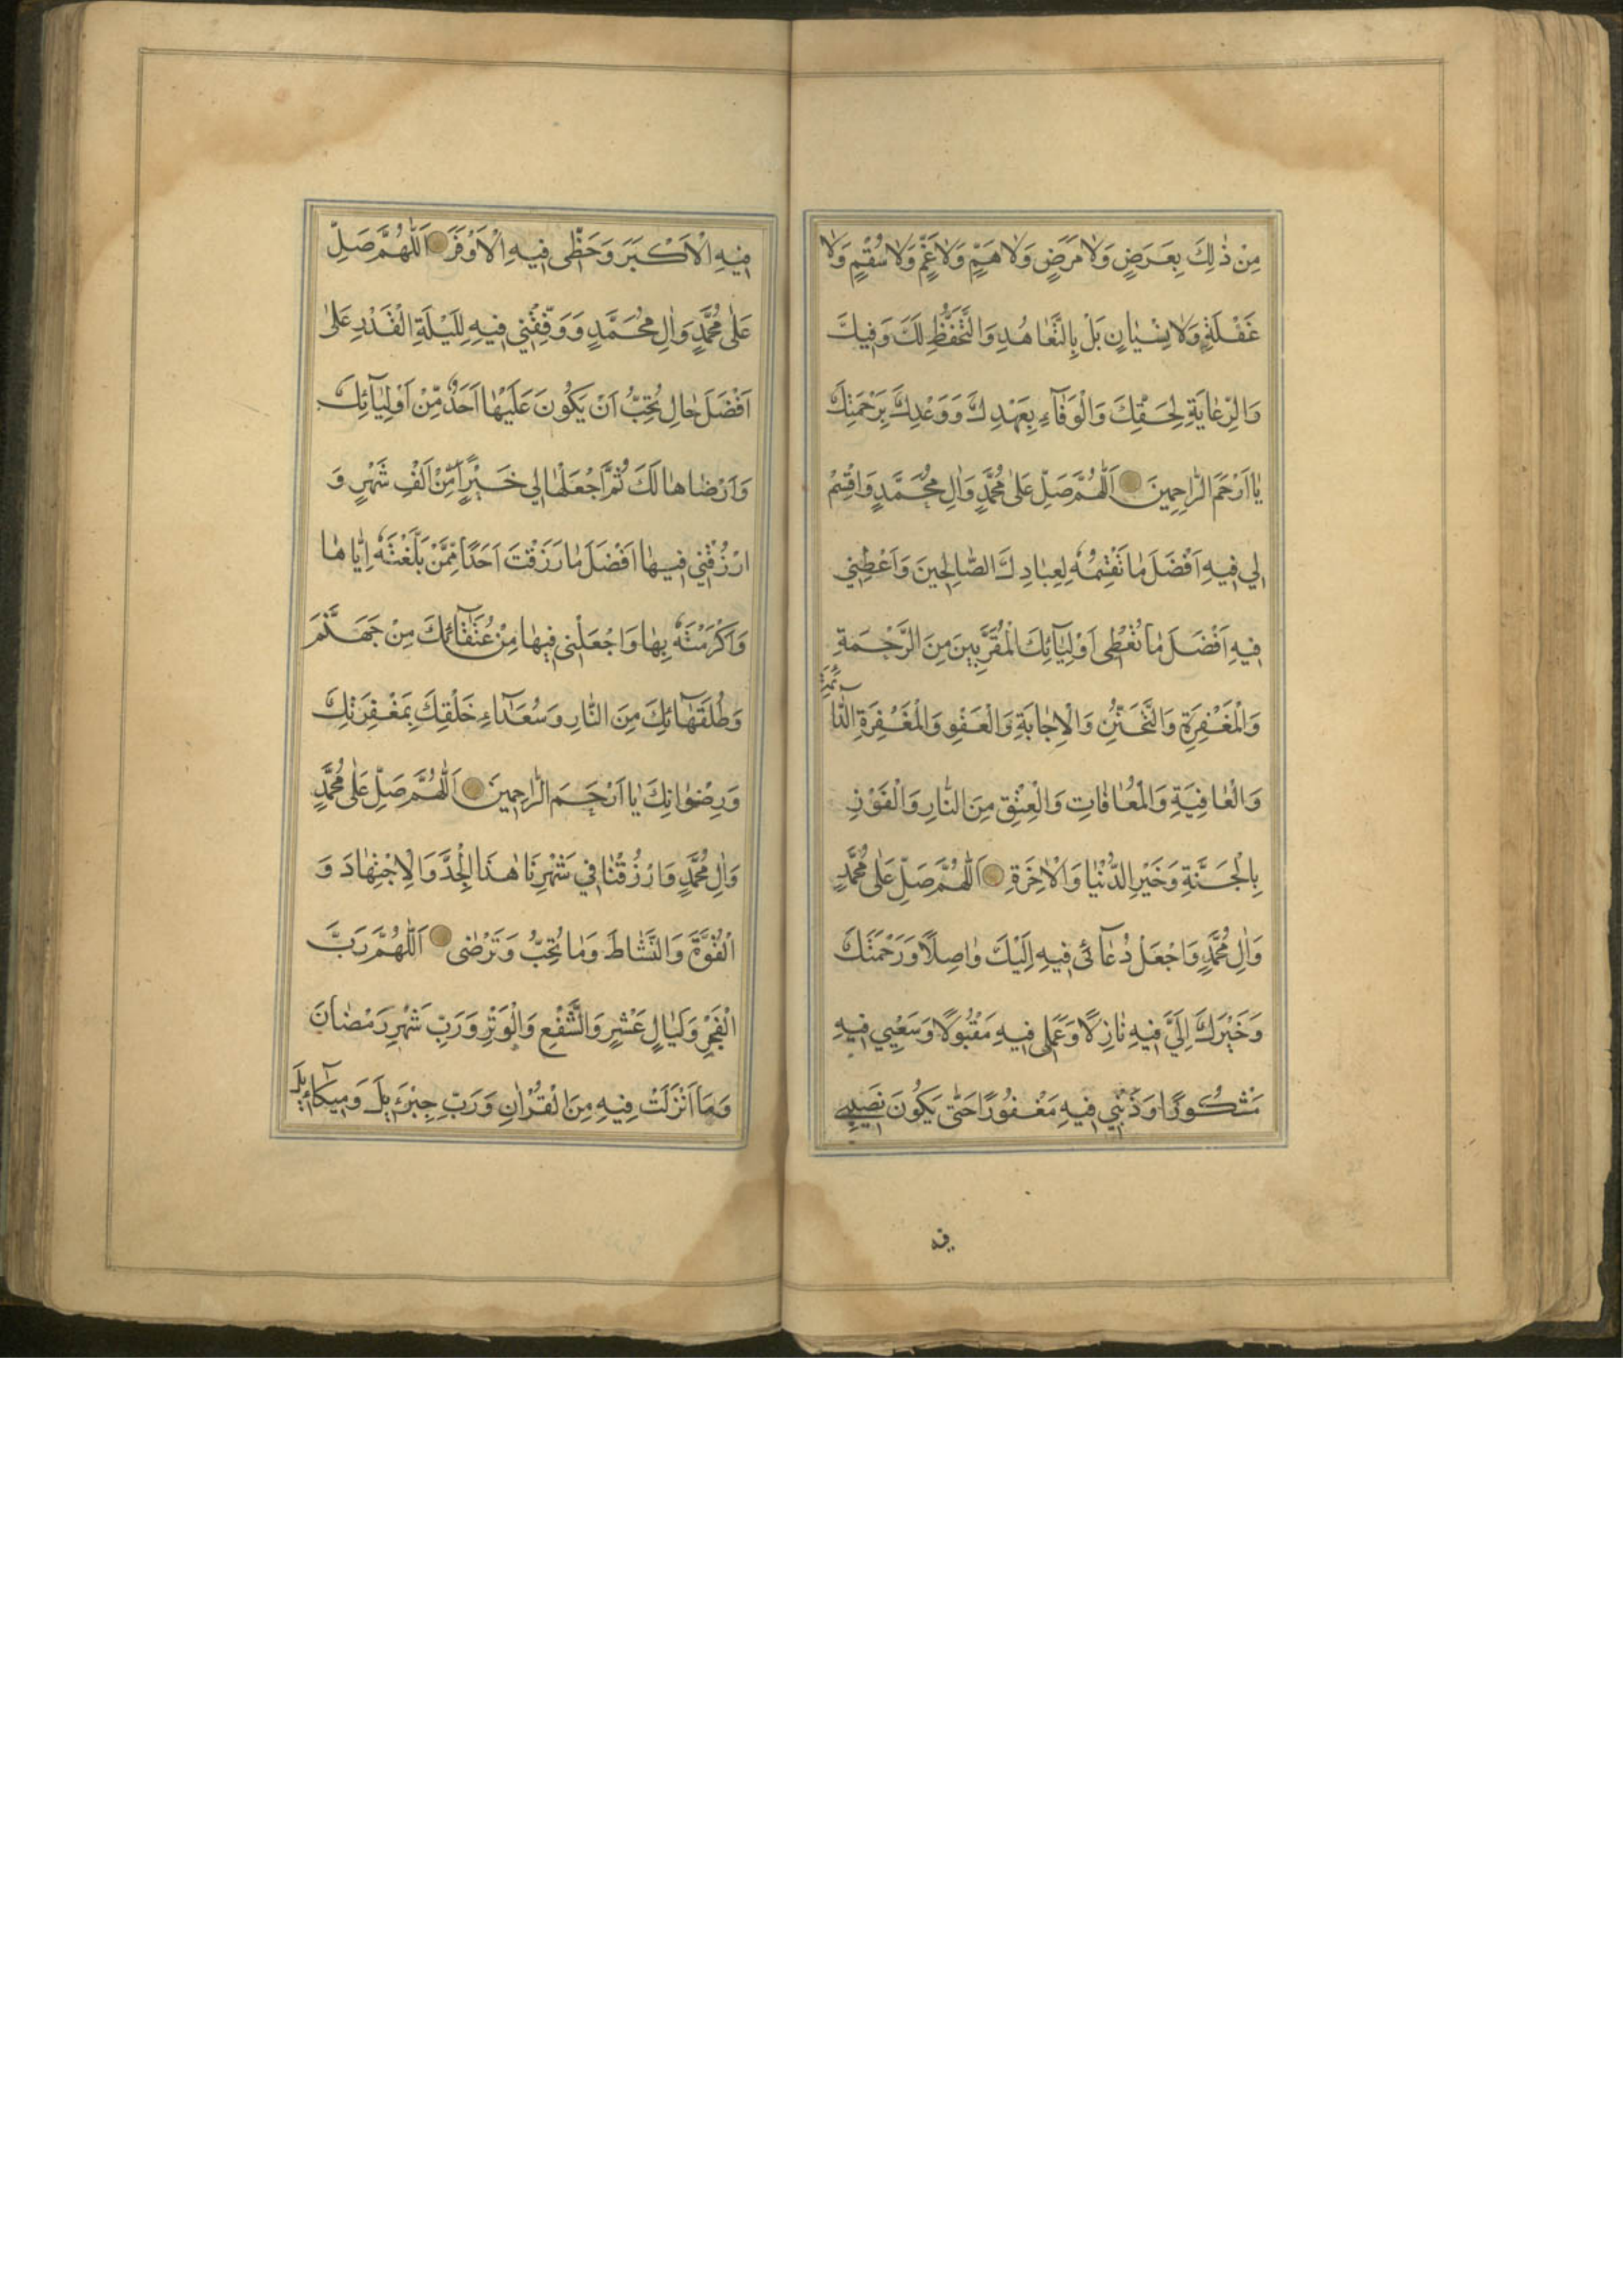 مِنْ ذٰلِكَ بِعَرَضٍ وَلٰا مَرَضٍ وَلٰا هَمٍّ وَلٰا غَمٍّ وَلٰا سُقْمٍ وَلٰا
غَفْلَةٍ وَلٰا نِسْيٰانٍ بَلْ بِالتَّعٰاهُدِ وَالتَّحَفُّظِ لَكَ وَفِيكَ
وَالرِّعٰايَةِ لِحَقِّكَ وَالْوَفٰآءِ بِعَهْدِكَ وَوَعْدِكَ بِرَحْمَتِكَ
يٰا اَرْحَمَ الرّٰاحِمِينَ اَللّٰهُمَّ صَلِّ عَلىٰ مُحَمَّدٍ وَاٰلِ مُحَمَّدٍ وَاقْسِمْ
لِي فِيهِ اَفْضَلَ مٰا تَقْسِمُهُ لِعِبٰادِكَ الصّٰالِحِينَ وَاَعْطِنِي
فِيهِ اَفْضَلَ مٰا تُعْطِى اَوْلِيٰآئِكَ الْمُقَرَّبِينَ مِنَ الرَّحْمَةِ
وَالْمَغْفِرَةِ وَالتَّحَنُّنِ وَالْاِجٰابَةِ وَالْعَفْوِ وَالْمَغْفِرَةِ الدّٰآئِمَةِ
وَالْعٰافِيَةِ وَالْمُعٰافٰاتِ وَالْعِتْقِ مِنَ النّٰارِ وَالْفَوْزِ
بِالْجَنَّةِ وَخَيْرِ الدُّنْيٰا وَالْاٰخِرَةِ اَللّٰهُمَّ صَلِّ عَلىٰ مُحَمَّدٍ
وَاٰلِ مُحَمَّدٍ وَاجْعَلْ دُعٰآئى فِيهِ اِلَيْكَ وٰاصِلًا وَرَحْمَتَكَ
وَخَيْرَكَ اِلَيَّ فِيهِ نٰازِلًا وَعَمَلى فِيهِ مَقْبُولًا وَسَعْيِي فِيهِ
مَشْكُورًا وَذَنْبِي فِيهِ مَغْفُورًا حَتّٰى يَكُونَ نَصِيبِي
فيه
فِيهِ الْاَكْبَرَ وَحَظّى فِيهِ الْاَوْفَرَ اَللّٰهُمَّ صَلِّ
عَلىٰ مُحَمَّدٍ وَاٰلِ مُحَمَّدٍ وَوَفِّقْنِي فِيهِ لِلَيْلَةِ الْقَدْرِ عَلىٰ
اَفْضَلَ حٰالٍ تُحِبُّ اَنْ يَكُونَ عَلَيْهٰا اَحَدٌ مِّنْ اَوْلِيٰآئِكَ
وَاَرْضٰاهٰا لَكَ ثُمَّ اجْعَلْهٰا لِي خَيْرًا مِّنْ اَلْفِ شَهْرٍ وَ
ارْزُقْنِي فِيهٰا اَفْضَلَ مٰا رَزَقْتَ اَحَدًا مِّمَّنْ بَلَّغْتَهُ اِيّٰاهٰا
وَاَكْرَمْتَهُ بِهٰا وَاجْعَلْنِى فِيهٰا مِنْ عُتَقٰآئِكَ مِنْ جَهَنَّمَ
وَطُلَقٰآئِكَ مِنَ النّٰارِ وَسُعَدٰآءِ خَلْقِكَ بِمَغْفِرَتِكَ
وَرِضْوٰانِكَ يٰا اَرْحَمَ الرّٰاحِمِينَ اَللّٰهُمَّ صَلِّ عَلىٰ مُحَمَّدٍ
وَاٰلِ مُحَمَّدٍ وَارْزُقْنٰا فِي شَهْرِنَا هٰذَا الْجِدَّ وَالْاِجْتِهٰادَ وَ
الْقُوَّةَ وَالنَّشٰاطَ وَمٰا تُحِبُّ وَتَرْضٰى اَللّٰهُمَّ رَبَّ
الْفَجْرِ وَلَيٰالٍ عَشْرٍ وَالشَّفْعِ وَالْوَتْرِ وَرَبِّ شَهْرِ رَمْضٰانَ
وَمَا اَنْزَلَتْ فِيهِ مِنَ الْقُرْاٰنِ وَرَبِّ جِبْرَئِيلَ وَمِيكٰآئِيلَ